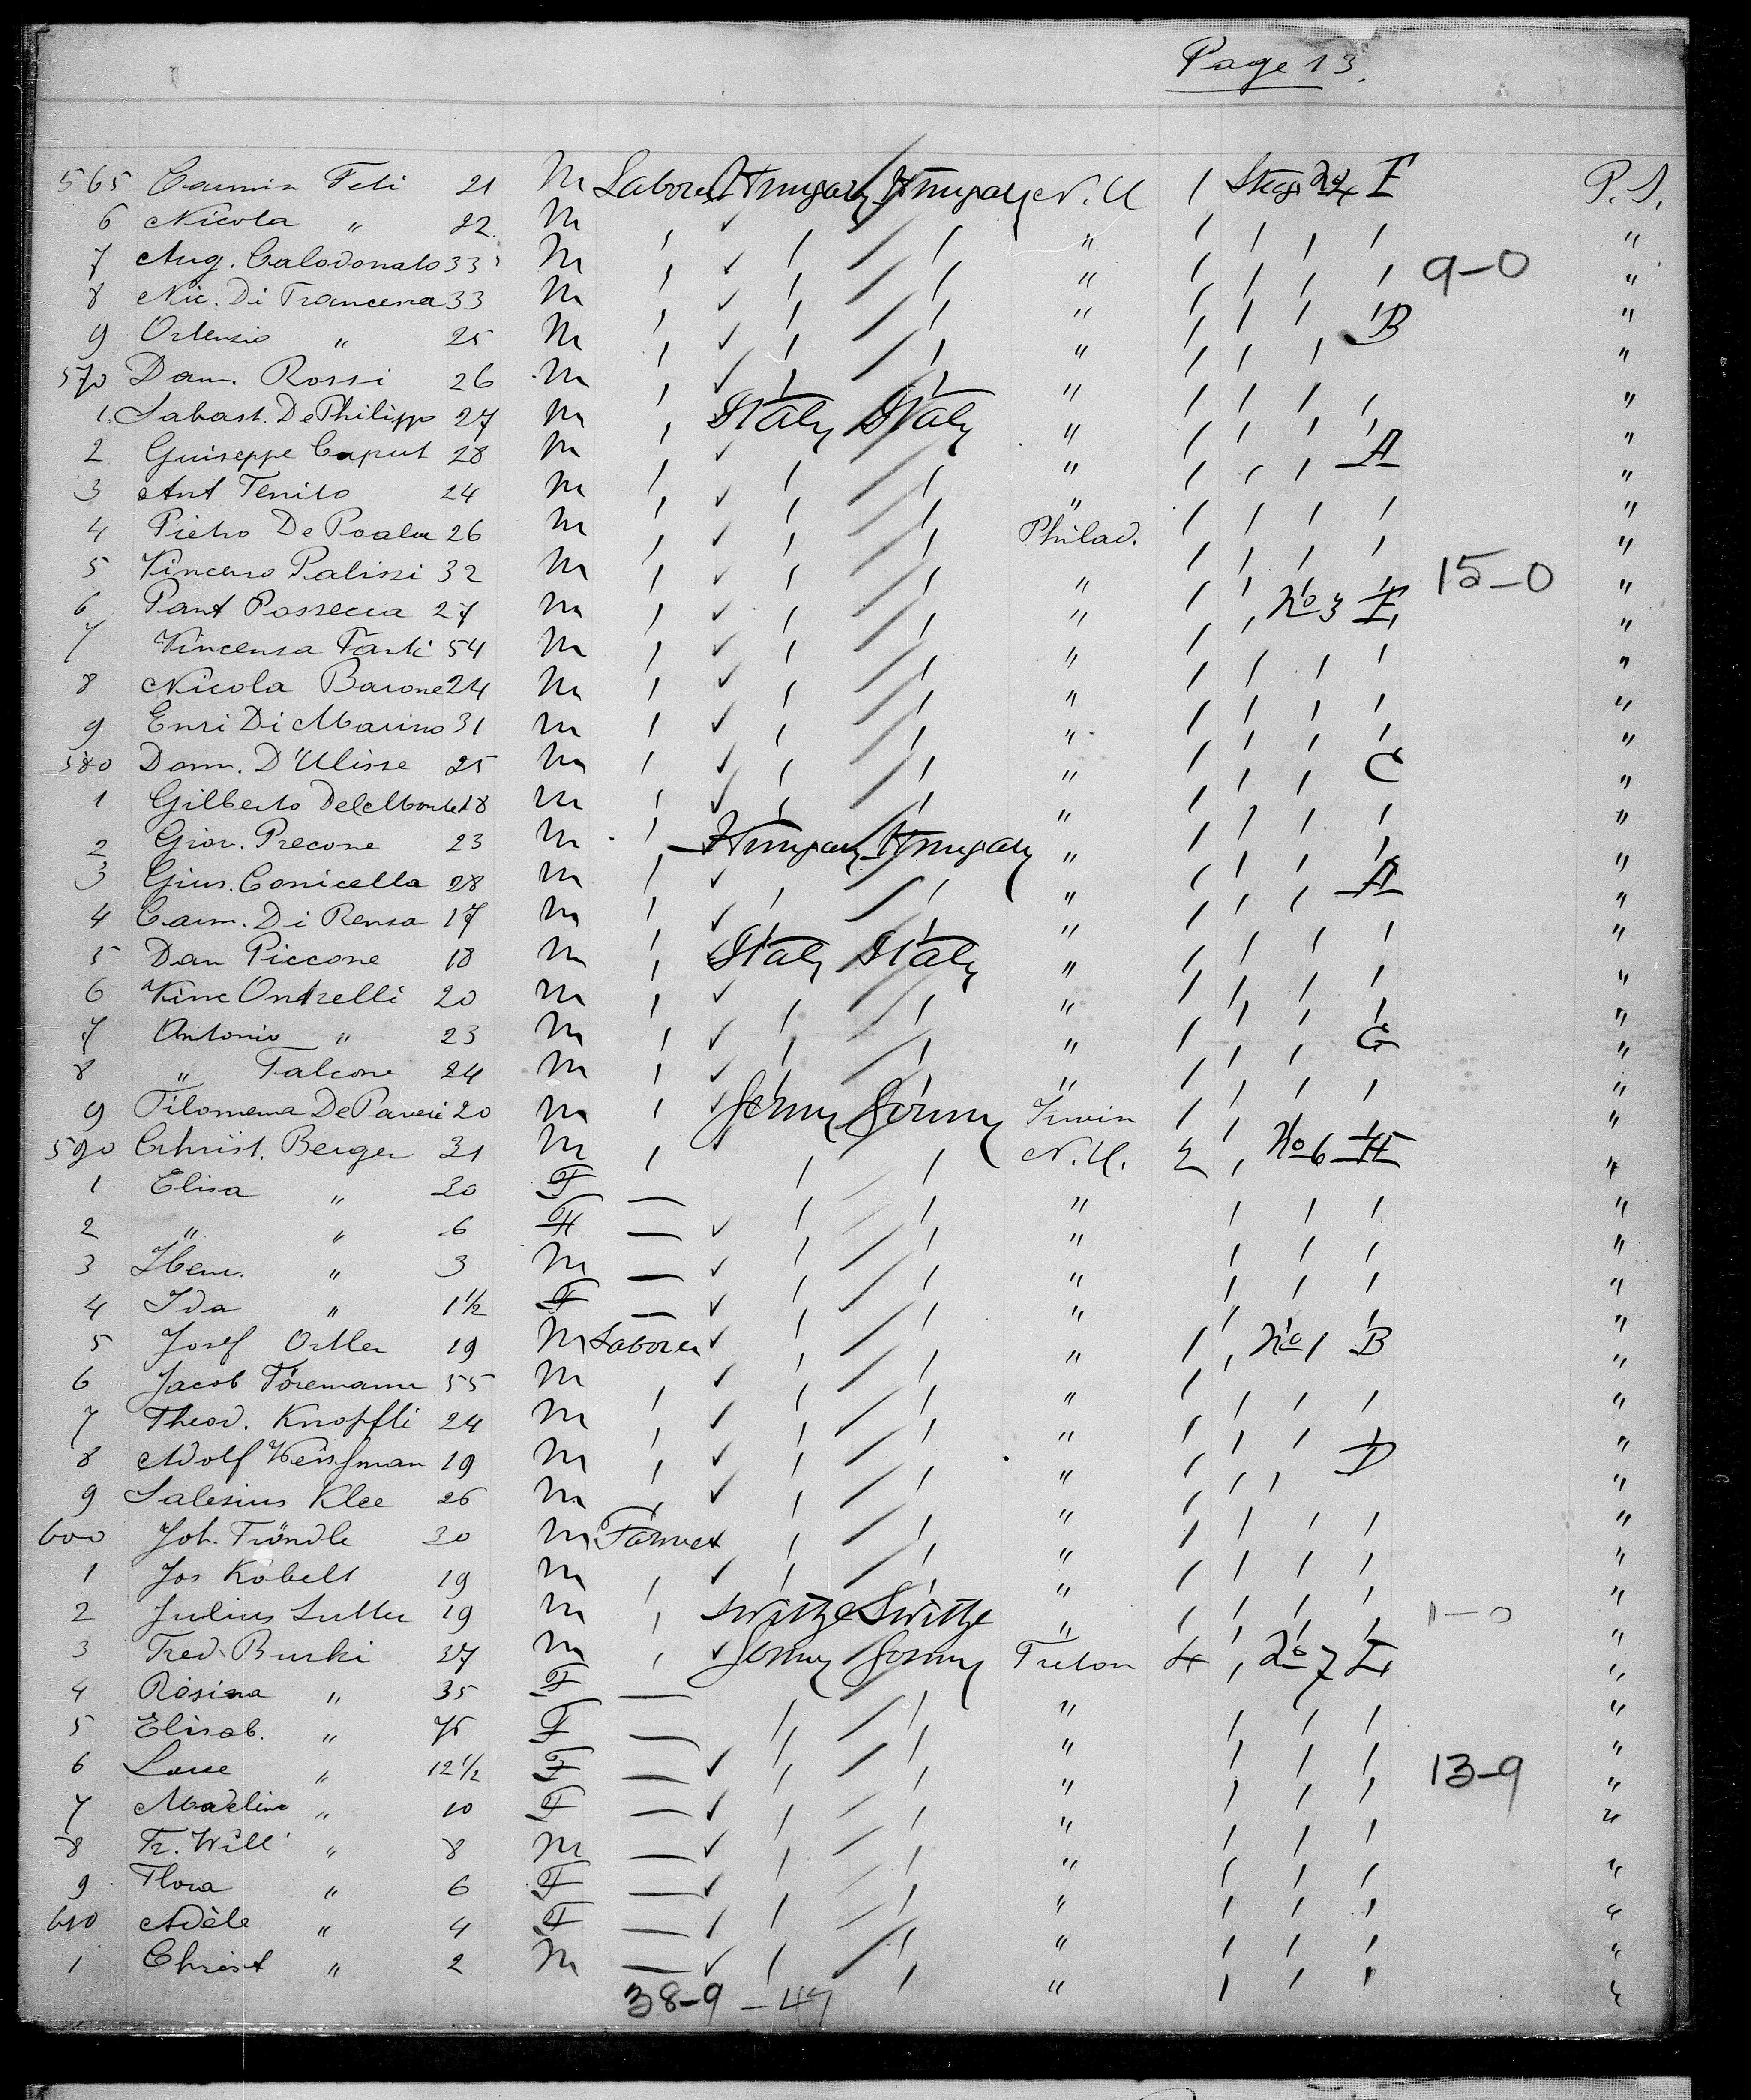 Page 13.
565 Carmin Feli 21 M Laborer Hungary Hungary N. Y. 1 Steeg. I P. S.
6 Nicola " 22. M " "
7 Aug. Calodonato 33 M " 9-0 "
8 Nic. Di Francesca 33 M " "
9 Ortensio " 25 M " B "
570 Dam. Rossi 26 M " "
1. Sabast. De Philippo 27 M Italy Italy " "
2 Guiseppe Caput 28 M " A "
3 Ant Tenito 24 M " "
4 Pietro De Poalu 26 M Philad. "
5 Vincenso Palissi 32 M " 15-0 "
6 Pant Possecca 27 M " No 3 "
7 Vincensa Fanti 54 M " "
8 Nicola Barone 24 M " "
9 Enri Di Marino 31 M " "
580 Dom. D'Ulisse 25 M " C "
1 Gilberto Del Monte 28 M " "
2 Giov. Precone 23 M Hungary Hungary " "
3 Gius. Conicella 28 M " A "
4 Carm. Di Rensa 17 M " "
5 Dan Piccone 18 M Italy Italy " "
6 Vinc Ontrelli 20 M " "
7 Antonio " 23 M " G "
8 " Falcone 24 M " "
9 Filomena De Paveri 20 M Germy Germy Irwin "
590 Christ. Berger 31 M N. Y. 2 No 6 H "
1 Elisa " 30 F — " "
2 " " 6 F — " "
3 Herm. " 3 M — " "
4 Ida " 1 1/2 F — " "
5 Josef Ortler 19 M Laborer " 1 No 1 B "
6 Jacob Föremann 55 M " "
7 Theod. Knopfli 24 M " "
8 Adolf Weissman 19 M " D "
9 Salesius Klee 26 M " "
600 Joh. Tröndle 30 M Farmer " "
1 Jos Kobelt 19 M " "
2 Julius Sutter 19 M Switze Switze " 1-0 "
3 Fred. Burki 37 M Germy Germy Fulton 4 No 7 "
4 Rosina " 35 F — " "
5 Elisab. " F — " "
6 Loise " 12 1/2 F — " 13-9 "
7 Madlin " 10 F — " "
8 Fr. Will " 8 M — " "
9 Flora " 6 F — " "
610 Adèle " 4 F — " "
1 Christ " 2 M — " "
38-9 - 47